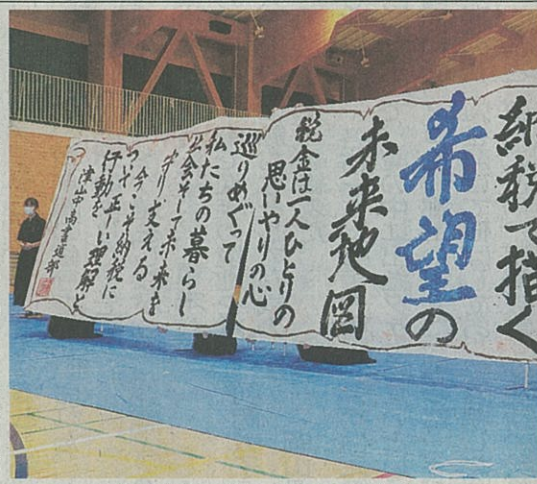 納税で描く
希望の
未来地図
税金は一人ひとりの
思いやりの心
巡りめぐって
私たちの暮らし
社会そして未来を
守り支える
今こそ納税に
正しい理解と
行動を
津山中高書道部